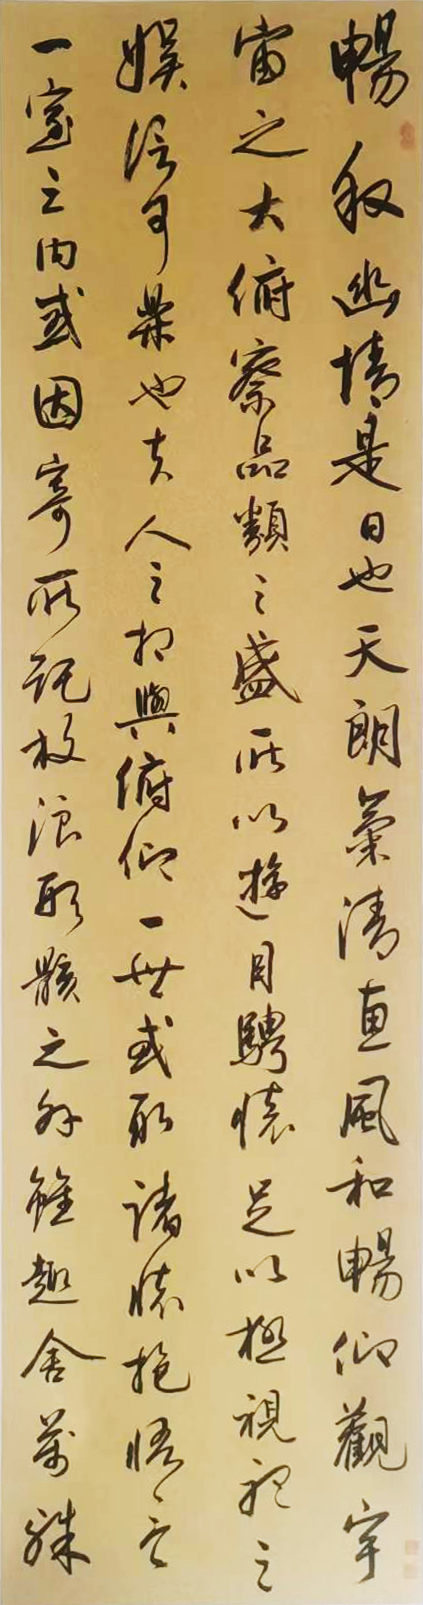 暢叙幽情是日也天朗氣清惠風和暢仰觀宇
宙之大俯察品類之盛所以遊目騁懷足以極視聽之
娛信可樂也夫人之相與俯仰一世或取諸懷抱悟言
一室之内或因寄所託放浪形骸之外雖趣舍萬殊